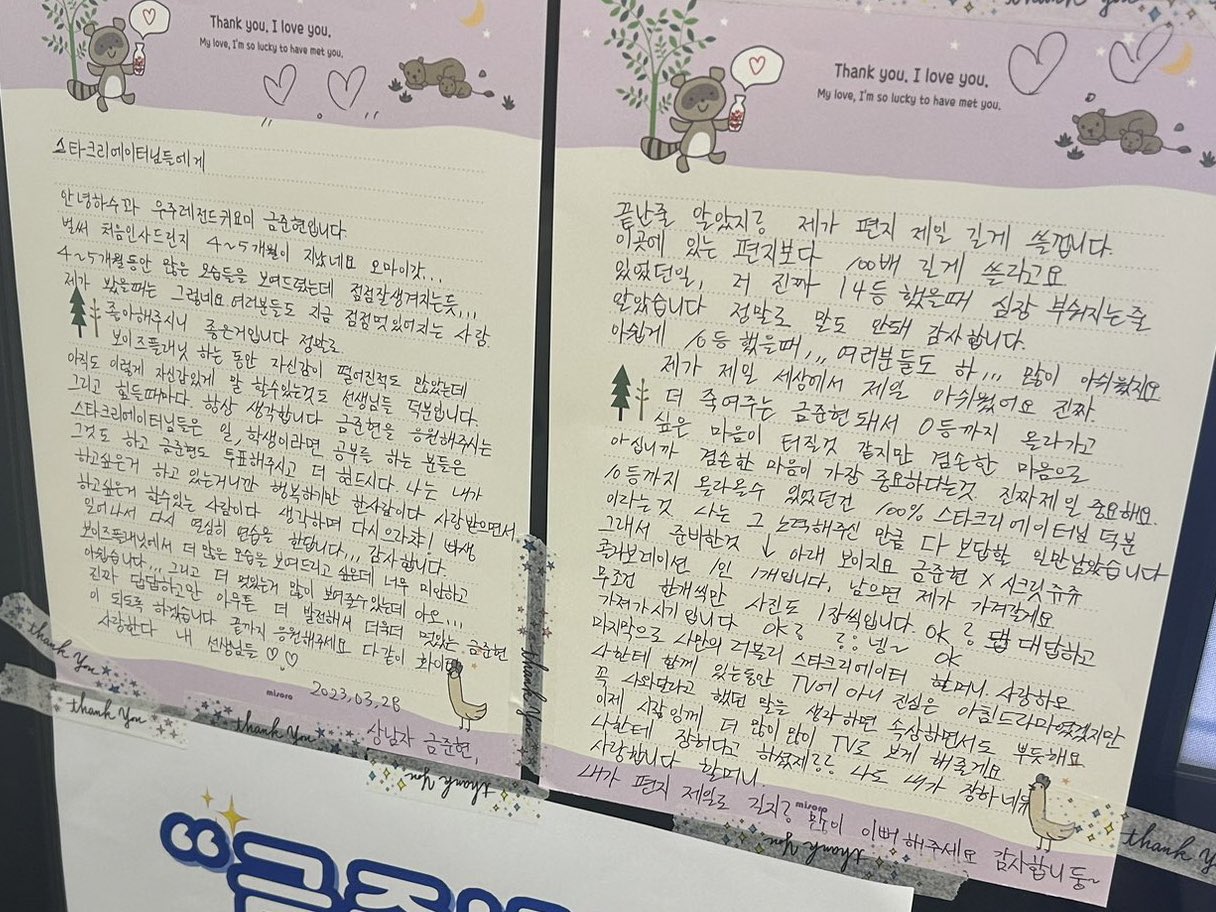 Thank you. I love you.
My love, I'm so lucky to have met you.
스타크리에이터님들에게
안녕하수과 우주레전드귀요미 금준현입니다
벌써 처음인사드린지 4~5개월이 지났네요 오마이갓...
4~5개월동안 많은 모습들을 보여드렸는데 점점잘생겨지는듯,,,
제가 봤을때는 그렇네요 여러분들도 지금 점점멋있어지는 사람
좋아해주시니 좋은거입니다 정말로.
보이즈플래닛 하는 동안 자신감이 떨어진적도 많았는데
아직도 이렇게 자신감있게 말 할수있는것도 선생님들 덕분입니다.
그리고 힘들때마다 항상 생각합니다 금준현을 응원해주시는
스타크리에이터님들은 일, 학생이라면 공부를 하는 분들은
그것도 하고 금준현도 투표해주시고 더 힘드시다 나는 내가
하고싶은거 하고 있는거니깐 행복하기만 한사람이다 사랑받으면서
하고싶은거 할수있는 사람이다 생각하며 다시 으라챠! 빠샹
일어나서 다시 열심히 연습을 한답니다,,, 감사합니다
보이즈플래닛에서 더 많은 모습을 보여드리고 싶은데 너무 미안하고
아쉽습니다,,, 그리고 더 멋있는거 많이 보여줄수있는데 아오,,,
진짜 답답하고만 아무튼 더 발전해서 더욱더 멋있는 금준현
이 되도록 하겠습니다 끝까지 응원해주세요 다같이 화이팅
사랑한다 내 선생님들 ♡.♡
misoro
2023.03.28
상남자 금준현,
Thank you. I love you.
My love, I'm so lucky to have met you.
끝난줄 알았지롱 제가 편지 제일 길게 쓸겁니다.
이곳에 있는 편지보다 100배 길게 쓸라고요
있었던일, 저 진짜 14등 했을때 심장 부숴지는줄
알았습니다 정말로 말도 안돼 감사합니다.
아쉽게 10등 했을때,,, 여러분들도 하,,, 많이 아쉬웠지요
제가 제일 세상에서 제일 아쉬웠어요 진짜.
더 죽여주는 금준현 돼서 0등까지 올라가고
싶은 마음이 터질것 같지만 겸손한 마음으로
아십니까 겸손한 마음이 가장 중요하다는것 진짜제일 중요해요.
10등까지 올라올수 있었던건 100% 스타크리에이터님 덕분
이라는것 나는 그 노력해주신 만큼 다 보답할 일만남았습니다
그래서 준비한것 ↓ 아래 보이지요 금준현 X 시크릿쥬쥬
콜라보레이션 1인 1개입니다, 남으면 제가 가져갈게요
무조건 한개씩만 사진도 1장씩입니다 OK 대답하고
가져가시기 입니다 넹~ OK
마지막으로 나만의 러블리 스타크리에이터 할머니. 사랑하오
나한테 함께 있는동안 TV에 아니 진실은 아침드라마였겠지만
꼭 나와달라고 했던 말을 생각하면 속상하면서도 뿌듯해요
이제 시작잉께 더 많이많이 TV로 보게 해줄게요
나한테 장허다고 하셨제 나도 내가 장하네유
사랑합니다 할머니,
misoro
내가 편지 제일로 길지롱 많이 이뻐해주세요 감사합니둥~
thank you
thank you
thank you
thank you
thank you
thank you
thank you